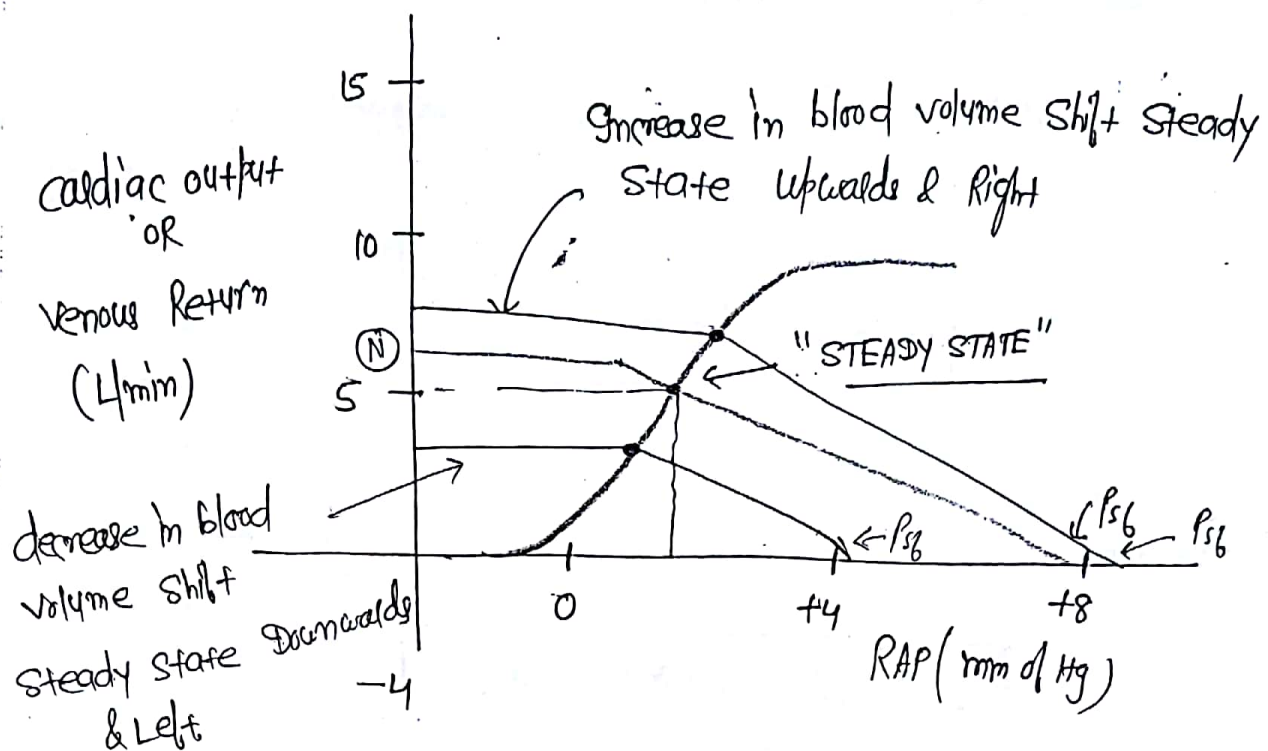 15
Increase in blood volume Shift Steady
State Upwards & Right
cardiac output
OR
10
Venous Return
(L/min)
N
"STEADY STATE"
5
decrease in blood
volume shift
Steady state Downwards
& Left
Psf
Psf
Psf
0
+4
+8
-4
RAP (mm of Hg)